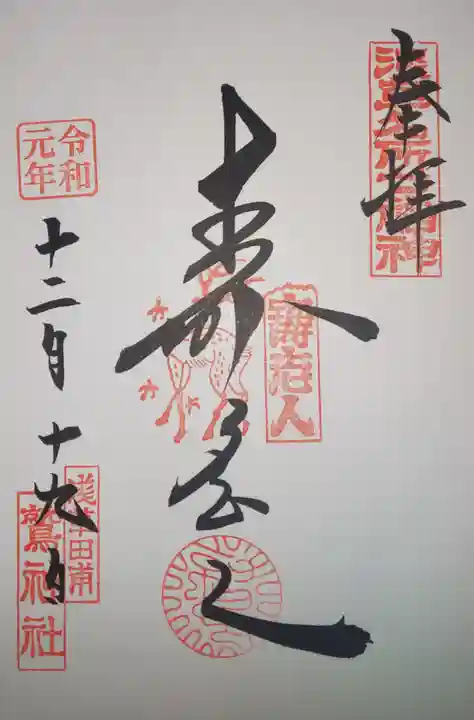 奉拝
浅草名所七福神
寿老人
寿老人
令和
元年
十二月十九日
浅草田甫
鷲神社